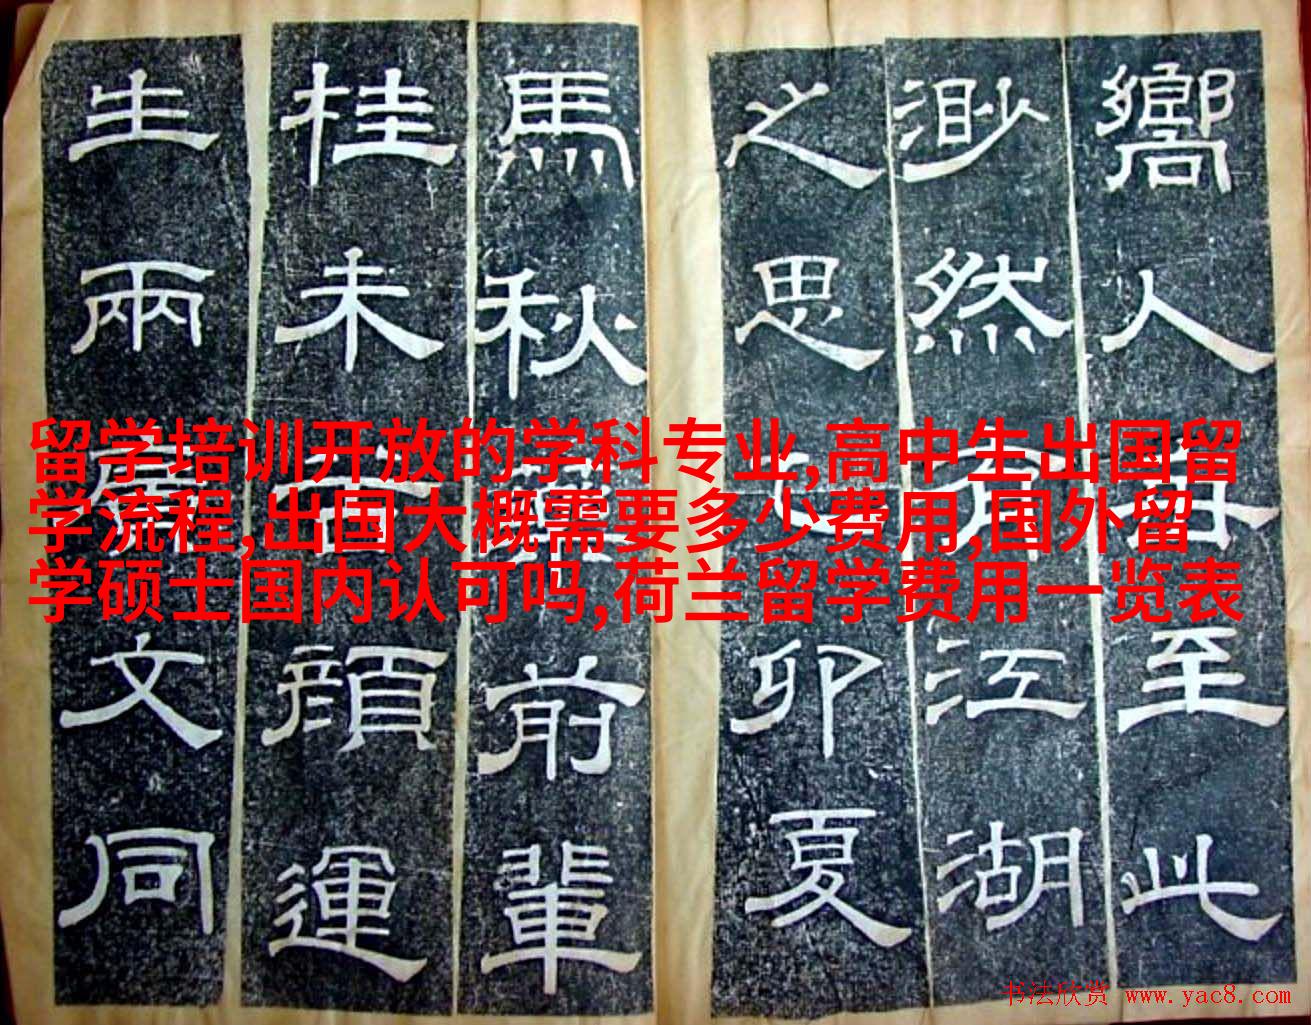 嚮人至此
渺然有江湖
之思卯夏
馬秋前輩
桂未谷顔運
生兩文同
留学培训开放的学科专业,高中生出国留
学流程,出国大概需要多少费用,国外留
学硕士国内认可吗,荷兰留学费用一览表
书法欣赏 www.yac8.com